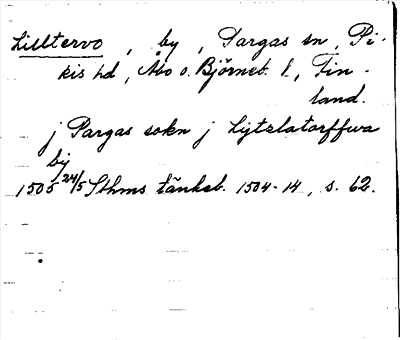 Lilltervo, by, Pargas sn, Pi-
kis hd, Åbo o. Björneb. l., Fin-
land.
j Pargas sokn j Lijtzlatorffwa
bij
1505 24/5 Sthms tänkeb. 1504-14, s. 62.